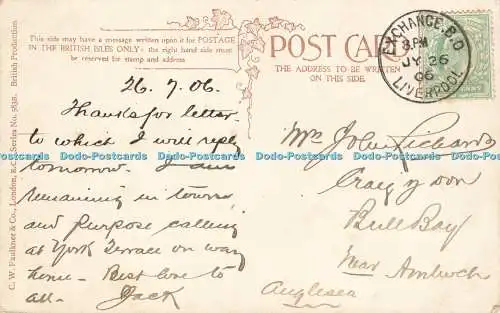 This side may have a message written upon it for POSTAGE
IN THE BRITISH ISLES ONLY the right hand side must
be reserved for stamp and address
POST CARD
THE ADDRESS TO BE WRITTEN
ON THIS SIDE.
EXCHANGE.B.O
8.PM
JY 26
06
LIVERPOOL
C. W. Faulkner & Co., London, E.C. Series No. British Production.
26.7.06.
Thanks for letter
to which I will reply
tomorrow. I am
remaining in town
and purpose calling
at York Terrace on way
home - Best love to
all - Jack
Mrs John Richards
Craig y don
Bull Bay
Near Amlwch
Anglesea
Dodo-Postcards Dodo-Postcards Dodo-Postcards Dodo-Postcards Dodo-Postcards Dodo-Postcards